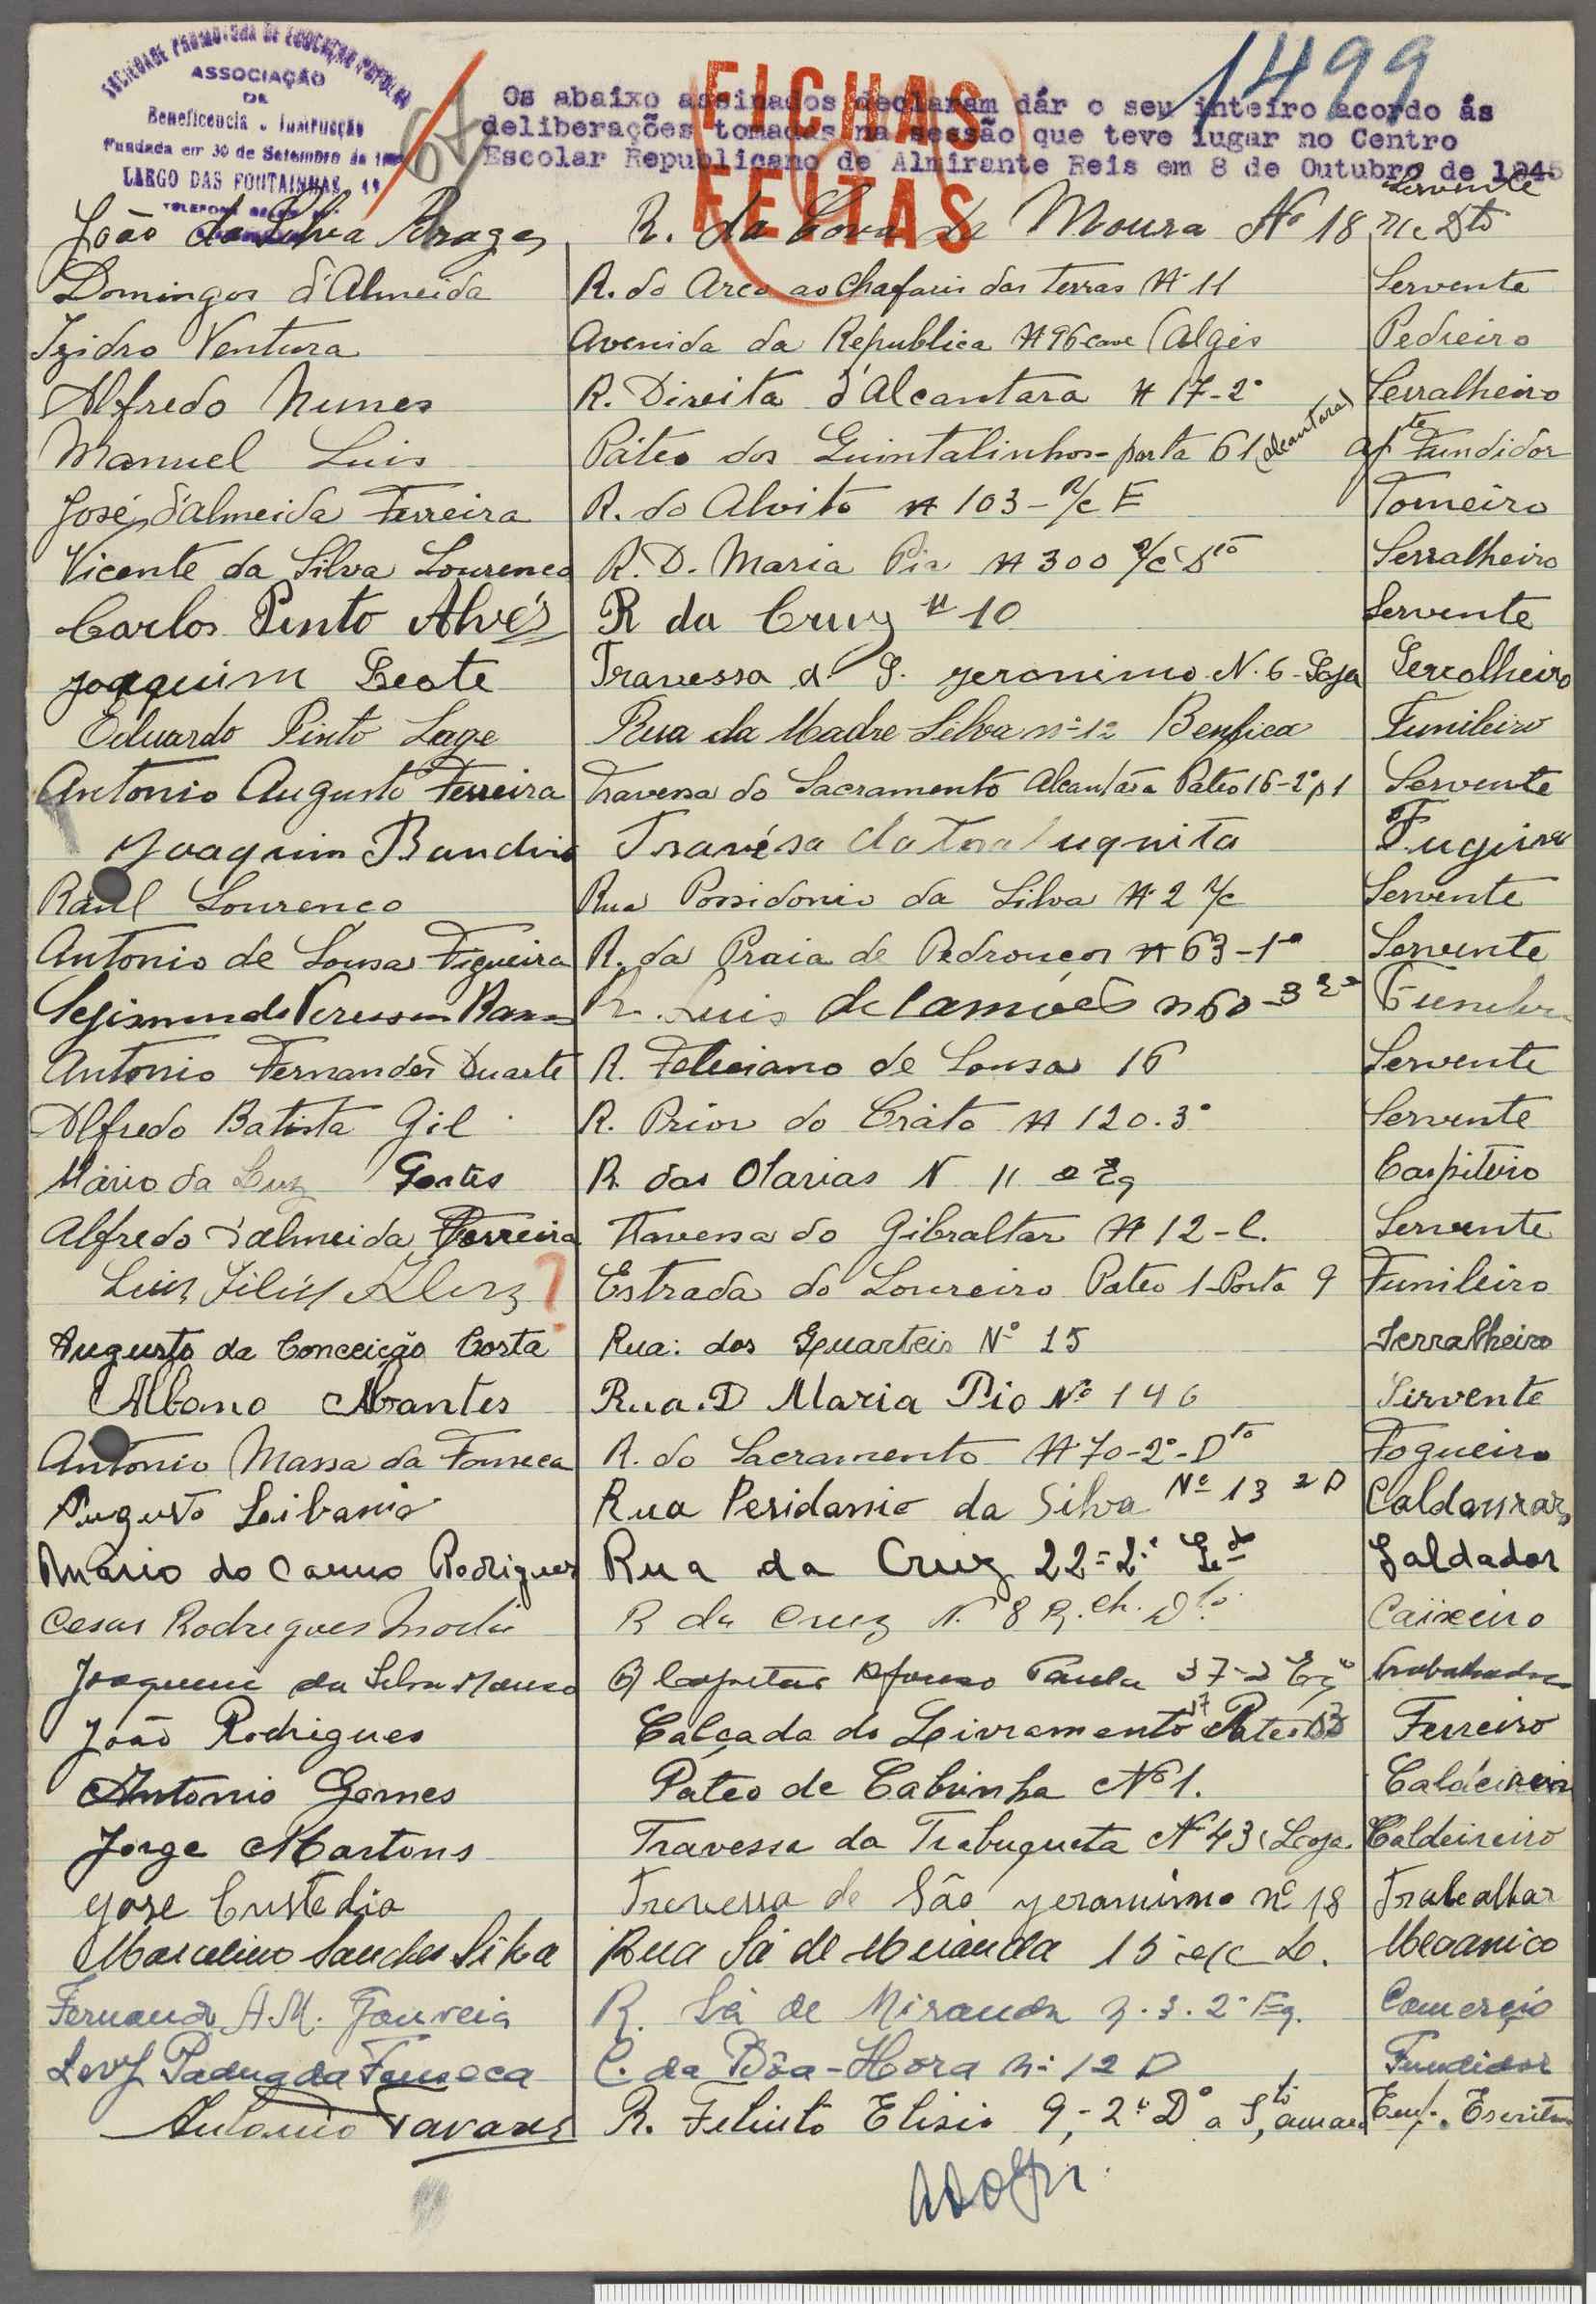 SOCIEDADE PROMOTORA DE EDUCAÇÃO POPULAR
ASSOCIAÇÃO
DE
Beneficencia e Instrucção
Fundada em 30 de Setembro de
LARGO DAS FONTAINHAS, 11
1499
67
FICHAS
FEITAS
Os abaixo assinados declaram dár o seu inteiro acordo ás
deliberações tomadas na sessão que teve lugar no Centro
Escolar Republicano de Almirante Reis em 8 de Outubro de 1945
João da Silva Braga R. da Cova da Moura Nº 18 r/c Dto Servente
Domingos d'Almeida R. do Arco ao Chafaris das terras Nº 11 Servente
Izidro Ventura Avenida da Republica Nº 96 cave (Algés Pedreiro
Alfredo Nunes R. Direita d'Alcantara Nº 17-2º Serralheiro
Manuel Luis Páteo dos Quintalinhos-porta 61 (Alcantara) apte Fundidor
José d'Almeida Ferreira R. do Alvito Nº 103-r/c E Torneiro
Vicente da Silva Lourenco R. D. Maria Pia Nº 300 r/c Dto Serralheiro
Carlos Pinto Alves R da Cruz Nº 10 Servente
Joaquim Leote Travessa d S. Jeronimo N. 6-Loja Sercolheiro
Eduardo Pinto Lage Rua da Madre Silva nº 12 Benfica Funileiro
Antonio Augusto Ferreira Travessa do Sacramento Alcantara Pateo 16-2º p1 Servente
Joaquim Travésa da
Raul Lourenco Rua Possidonio da Silva Nº 2 r/c Servente
Antonio de Sousa Figueira R. da Praia de Pedrouços Nº 63-1º Servente
R. Luis de Camões nº 60-3
Antonio Fernandes Duarte R. Feliciano de Sousa 16 Servente
Alfredo Batista Gil R. Prior do Crato Nº 120.3º Servente
Mário da Luz R das Olarias N 11 Carpiteiro
Alfredo d'Almeida Ferreira Travessa do Gibraltar Nº 12-C. Servente
Luiz ? Estrada do Loureiro Pateo 1-Porta 9 Funileiro
Augusto da Conceição Costa Rua: dos Quarteis Nº 15 Serralheiro
Albano Abrantes Rua. D Maria Pio Nº 146 Sirvente
Antonio Massa da Fonseca R. do Sacramento Nº 70-2º-Dto Fogueiro
Augusto Leibania Rua Peridamio da Silva Nº 13 2 D
Mário do Carmo Rodrigues Rua da Cruz 22=2º Edo Soldador
Cesar Rodrigues R da Cruz N. 8 R. ch. Dto Caixeiro
Joaquim da Silva R Capitão Afonso Paula 37-2 Eqº trabalhador
João Rodrigues Calçada do Livramento 17 Pateo Ferreiro
Antonio Gomes Páteo de Cabrinha Nº 1.
Jorge Martons Travessa da Trabuqueta Nº 43 (Loja. Caldeireiro
Jose Custodio Trevessa de São Jeronimo nº 18
Marcelino Sanches Silva Rua Sá de Miranda 15 r/c D. Mecanico
Fernando A.M. Gouveia R. Sá de Miranda n. 3. 2º Eq. Comerçio
Levy Padua da Fonseca C. da Bôa-Hora nº 12 D Fundidor
Antonio Tavares R. Felinto Elisio 9,-2º Dº a Sto, amaro Emp. Escritorio